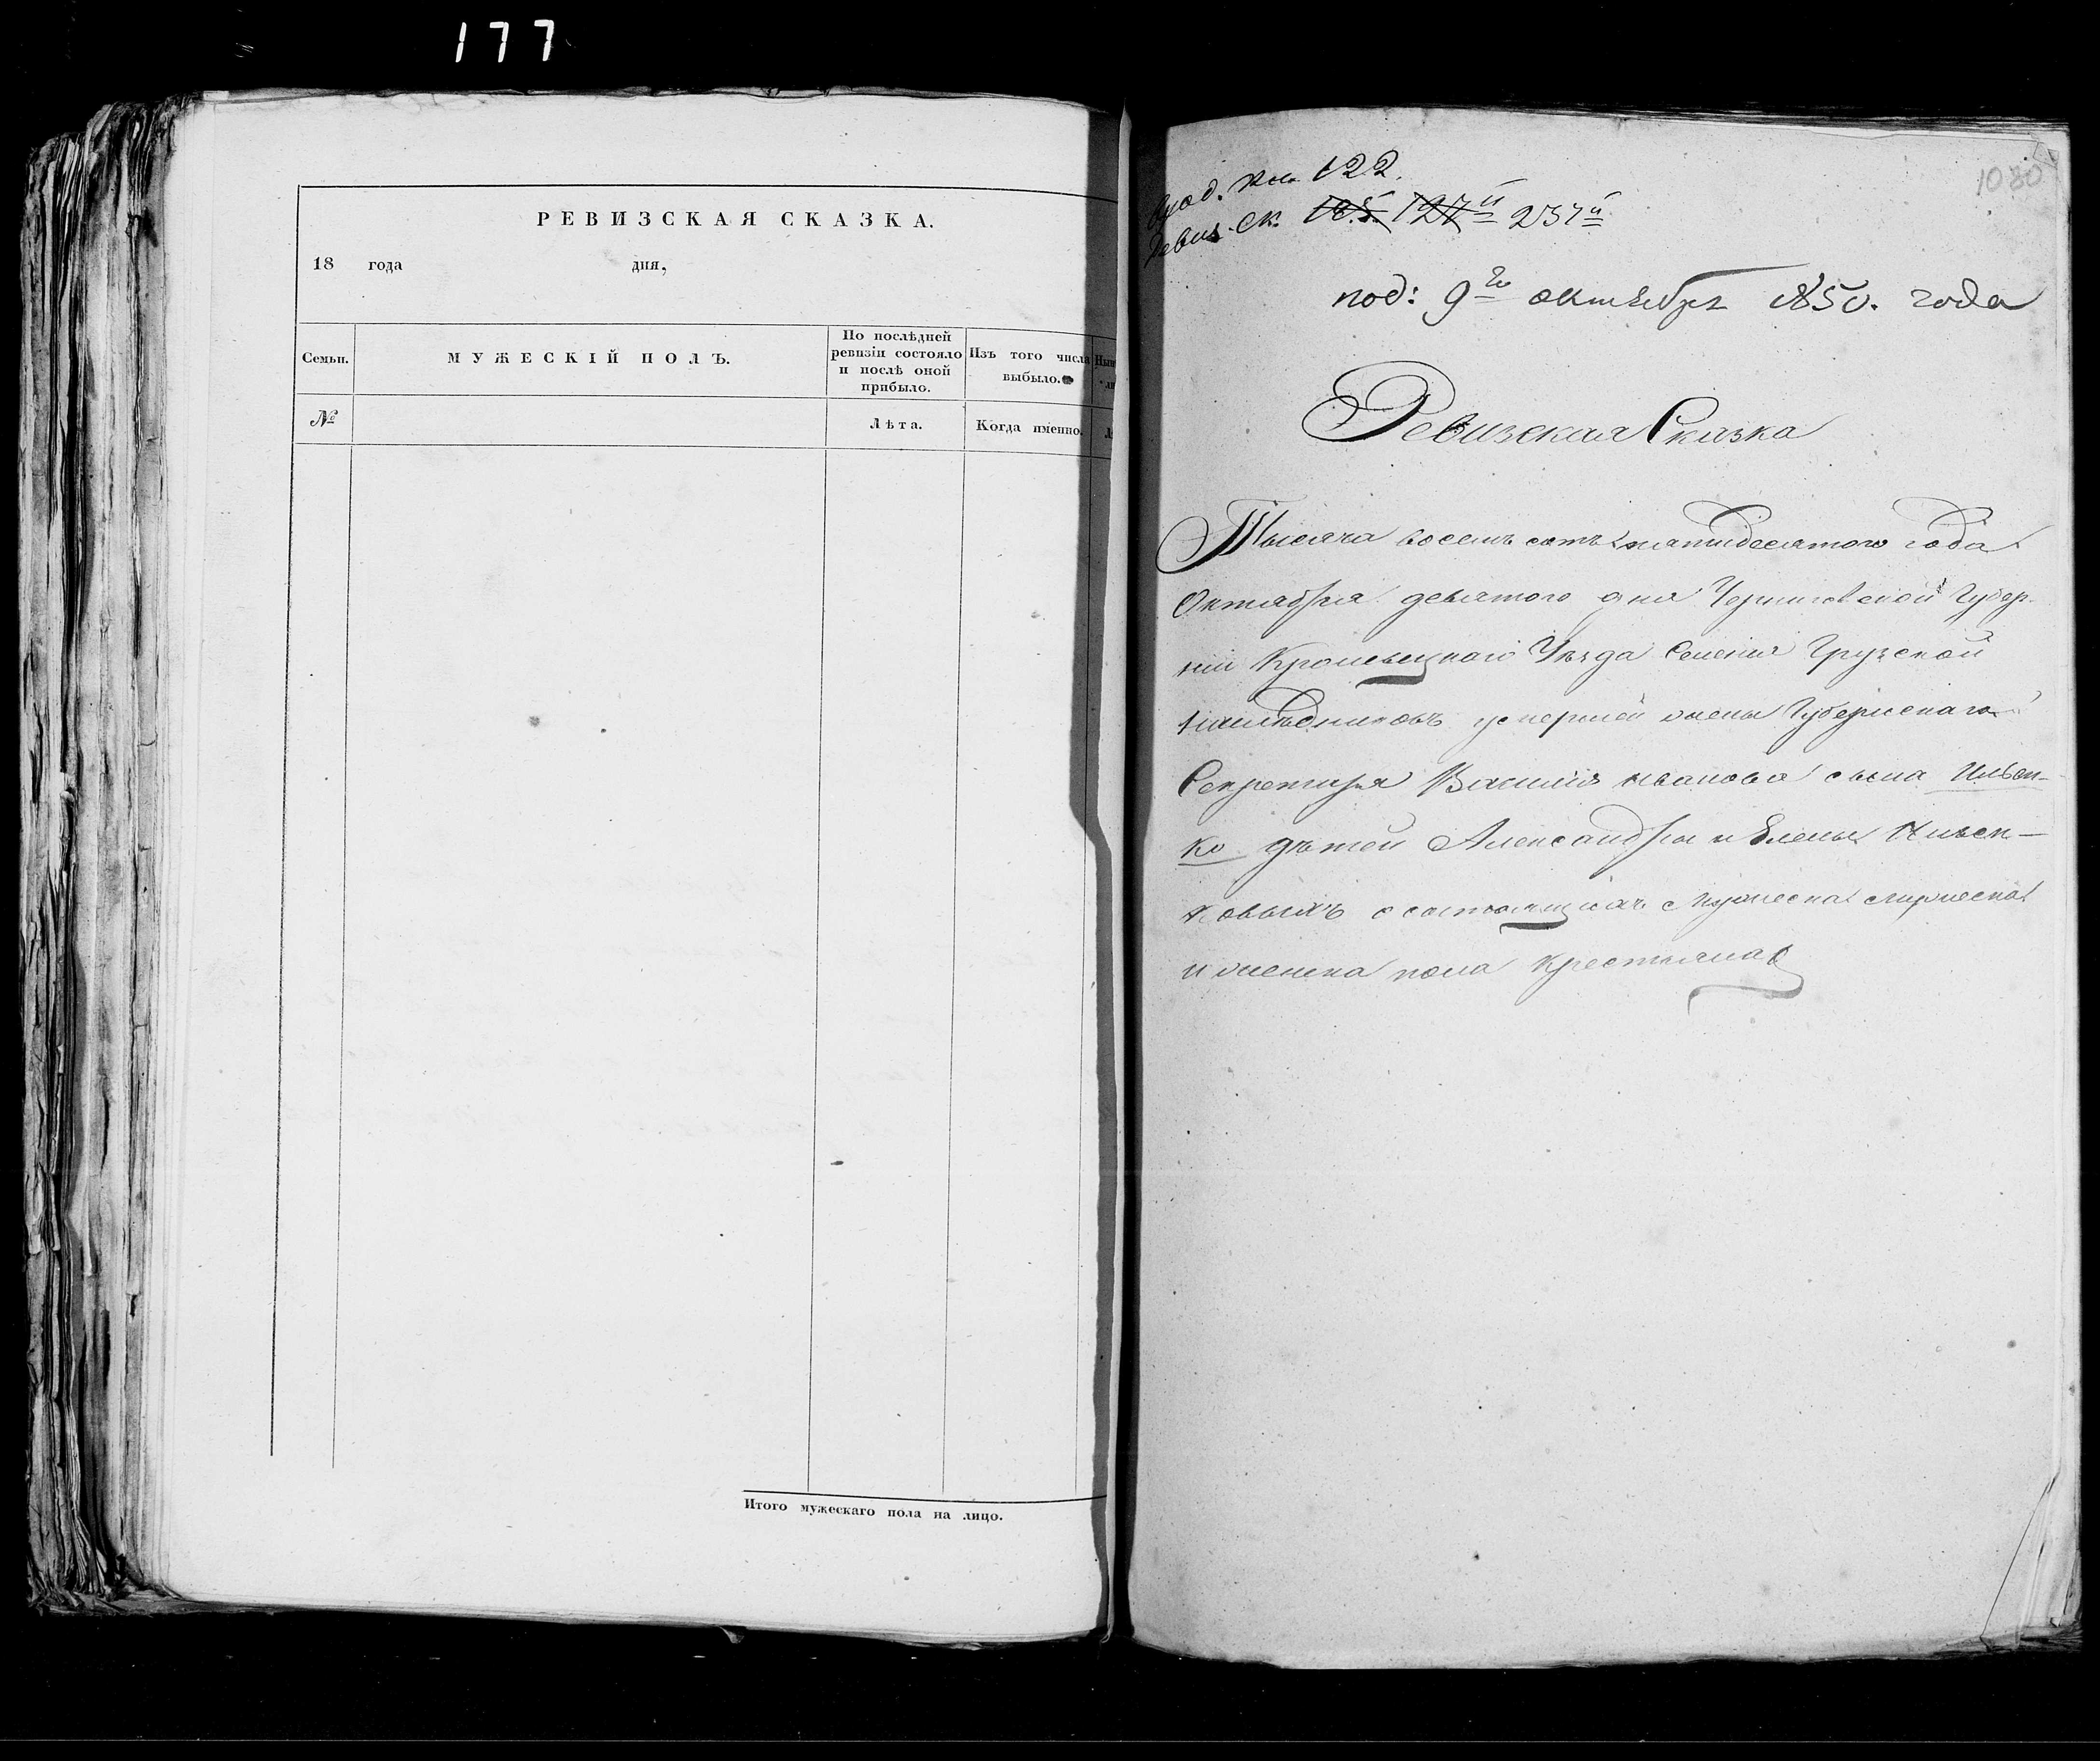 177
РЕВИЗСКАЯ СКАЗКА.
18 года дня,
Семьи.
МУЖЕСКІЙ ПОЛЪ.
По послѣдней
ревизіи состояло
и послѣ оной
прибыло.
Изъ того числа
выбыло.
№
Лѣта.
Когда именно.
Итого мужескаго пола на лицо.
1080
122.
Ревиз. Ск. 127й 237й
под: 9го октября 1850. года
Ревизская Сказка
Тысяча восемь сотъ пятидесятого года
Октября девятого дня Черниговской Губер-
ніи Кролевецкого Уѣзда Селенія Грузской
Наслѣдниковъ умершей жены Губернскаго
Секретаря Василія Иванова сына Ильен-
ко дѣтей Александры и Елены Ильен-
ковыхъ о состоящихъ мужеска
и женска пола крестьянах